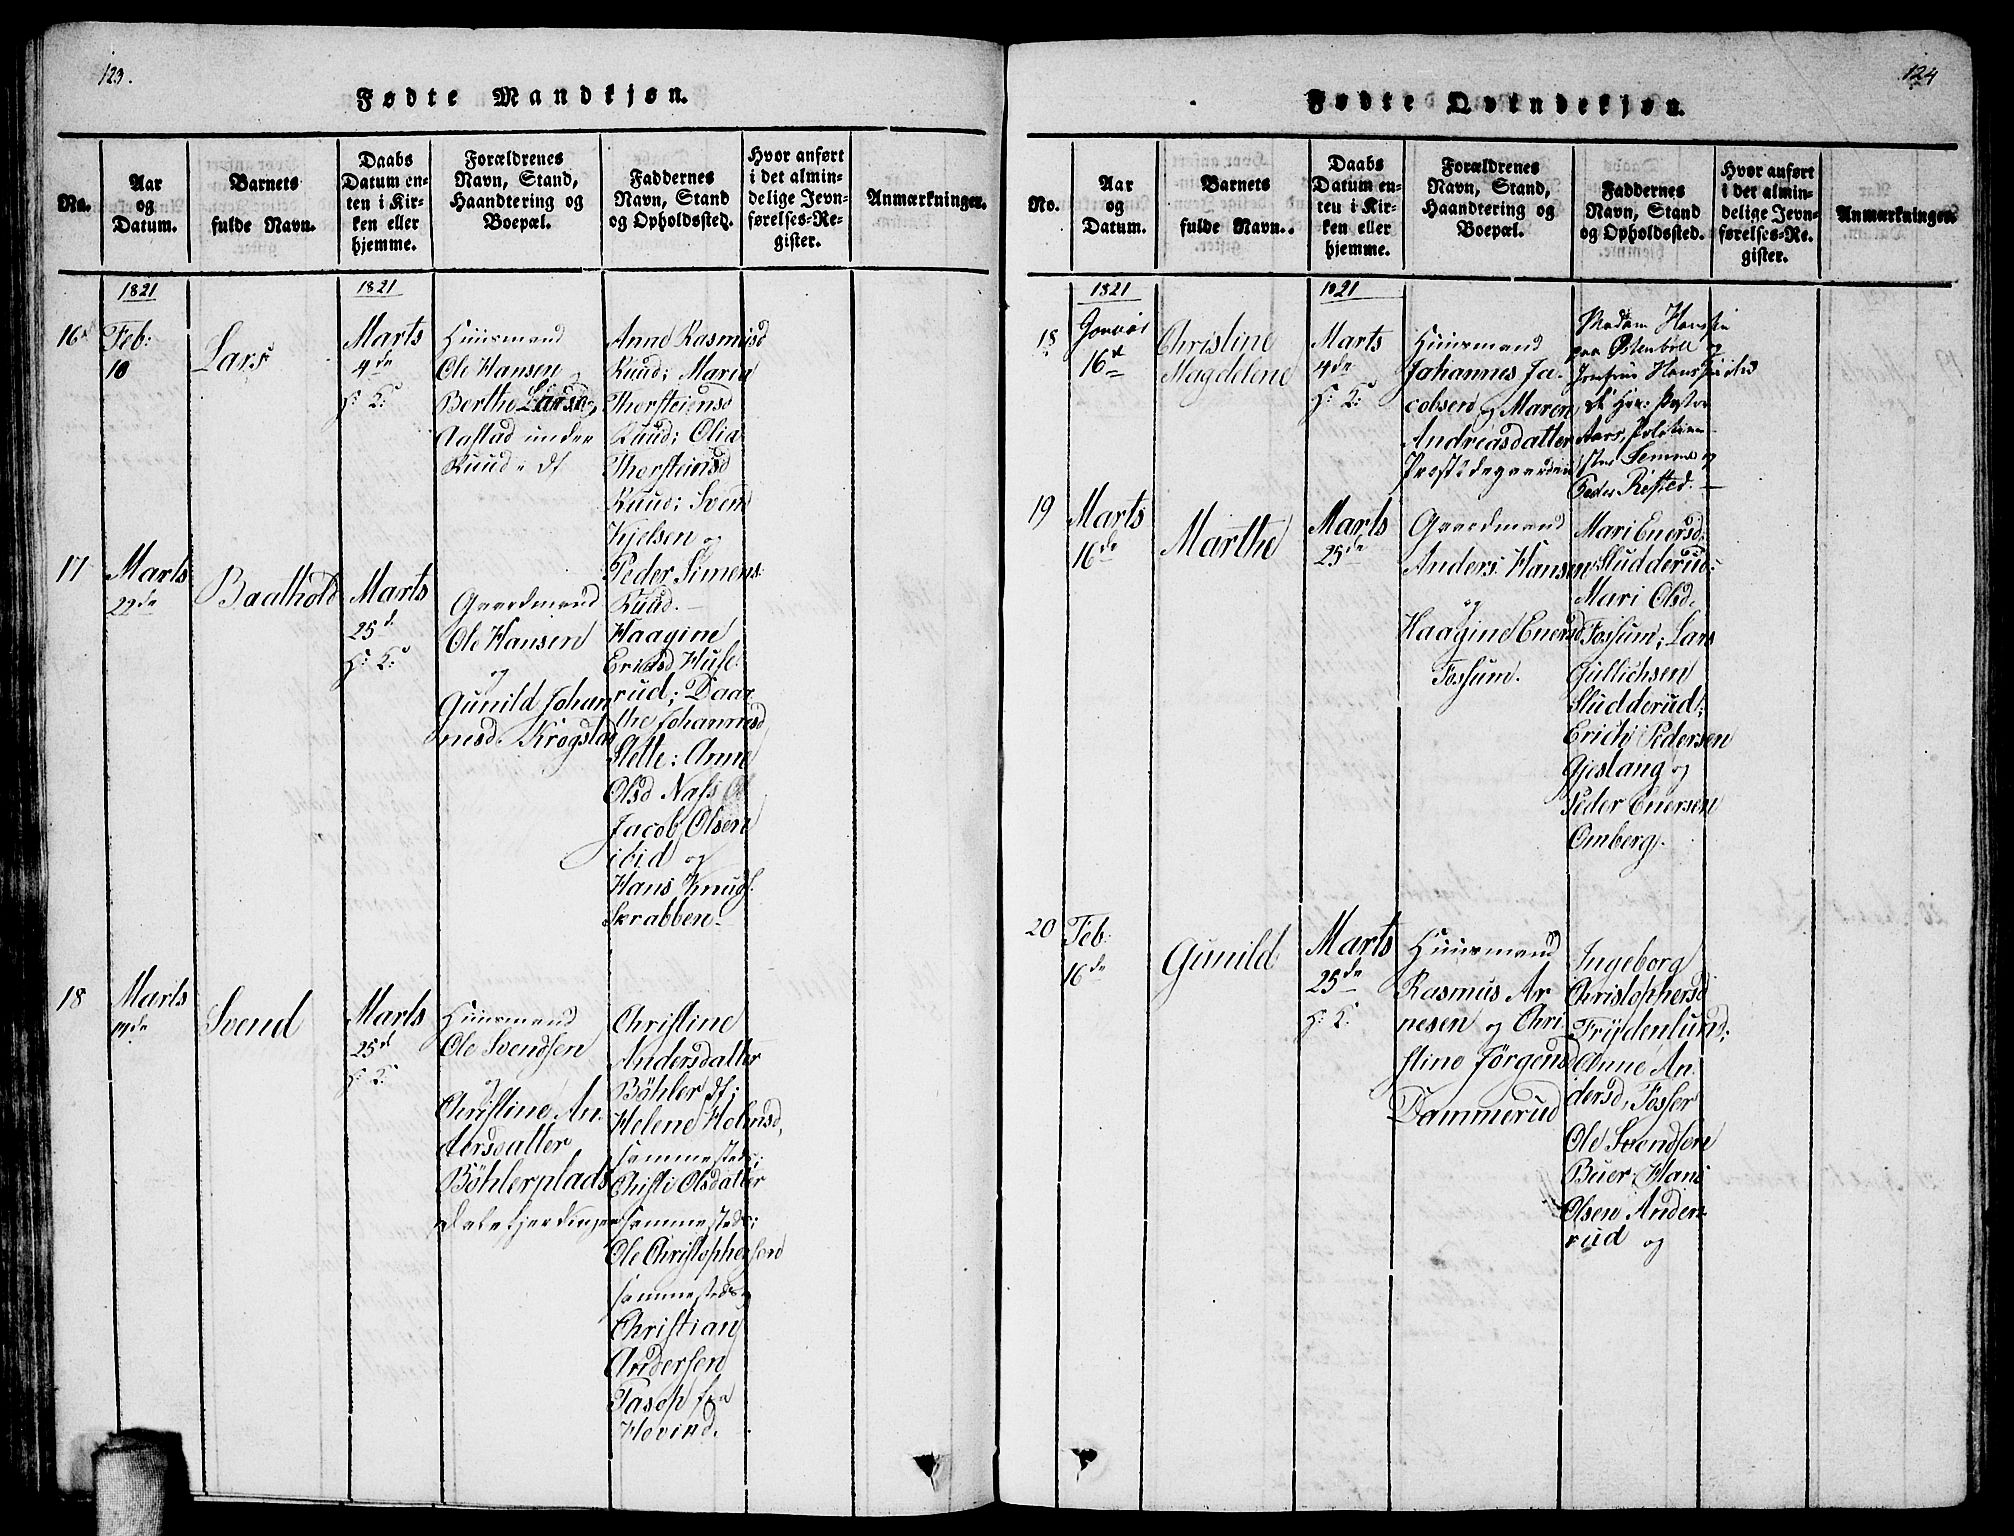 123.
Fødte Mandkjøn.
No.
Aar
og
Datum.
Barnets
fulde Navn.
Daabs
Datum en-
ten i Kir-
ken eller
hjemme.
Forældrenes
Navn, Stand,
Haandtering og
Boepæl.
Faddernes
Navn, Stand
og Opholdssted.
Hvor anført
i det almin-
delige Jevn-
førelses-Re-
gister.
Anmærkninger.
1821
1821
16
Feb:
10
Lars
Marts
4de
H: K:
Huusmand
Ole Hansen
Berthe Larsd,
Aastad under
Ruud. df
Anne Rasmusd
Ruud; Maria
Thorsteinsd
Ruud; Olia
Thorsteinsd
Ruud; Svend
Kjelsen og
Peder Simens:
Ruud.
17
Marts
22de
Baathold
Marts
25d
H: K:
Gaardmand
Ole Hansen
og
Gunild Johan
nesd. Krogstad
Haagine
Ericksd Huse
rud; Daar
the Johannesd
Slette: Anne
Olsd Nafs
Jacob Olsen
ibid og
Hans Knuds:
Skrabben.
18
Marts
14de
Svend
Marts
25d
H: K:
Huusmand
Ole Svendsen
og
Christine An
dersdatter
Böhlerplads
Christine
Andersdatter
Böhler df;
Helene Holmsd,
sammesteds;
Christi Olsdatter
sammesteds;
Ole Christophersen
sammesteds og
Christian
Andersen
Hovind.
124
Fødte Qvindekjøn.
No.
Aar
og
Datum.
Barnets
fulde Navn.
Daabs
Datum en-
ten i Kir-
ken eller
hjemme.
Forældrenes
Navn, Stand,
Haandtering og
Boepæl.
Faddernes
Navn, Stand
og Opholdssted.
Hvor anført
i det almin-
delige Jevn-
førelses-Re-
gister.
Anmærkninger.
1821
1821
18
Januar
16d
Christine
Magdelene
Marts
4de
H: K:
Huusmand
Johannes Ja-
cobsen og Maren
Andreasdatter
Præstegaarden
Madam Hansen
paa Østenböll og
Jomfrue Hans
Peder Rösted.
19
Marts
16de
Marthe
Marts
25de
Gaardmand
Anders Hansen
og
Haagine Enersd
Fossum.
Mari Enersd.
Sludderud:
Mari Olsd.
Fossum; Lars
Gullichsen
Sludderud;
Erich Pedersen
Gjeslang og
Peder Enersen
Omberg.
20
Feb:
16de
Gunild
Marts
25de
H: K:
Huusmand
Rasmus Ar
nesen og Chri
stine Jörgensd
Dammerud
Ingeborg
Christophersd
Fröjdenlund;
Anne An
dersd, Fosser
Ole Svendsen
Buer; Hans
Olsen Anders
rud og